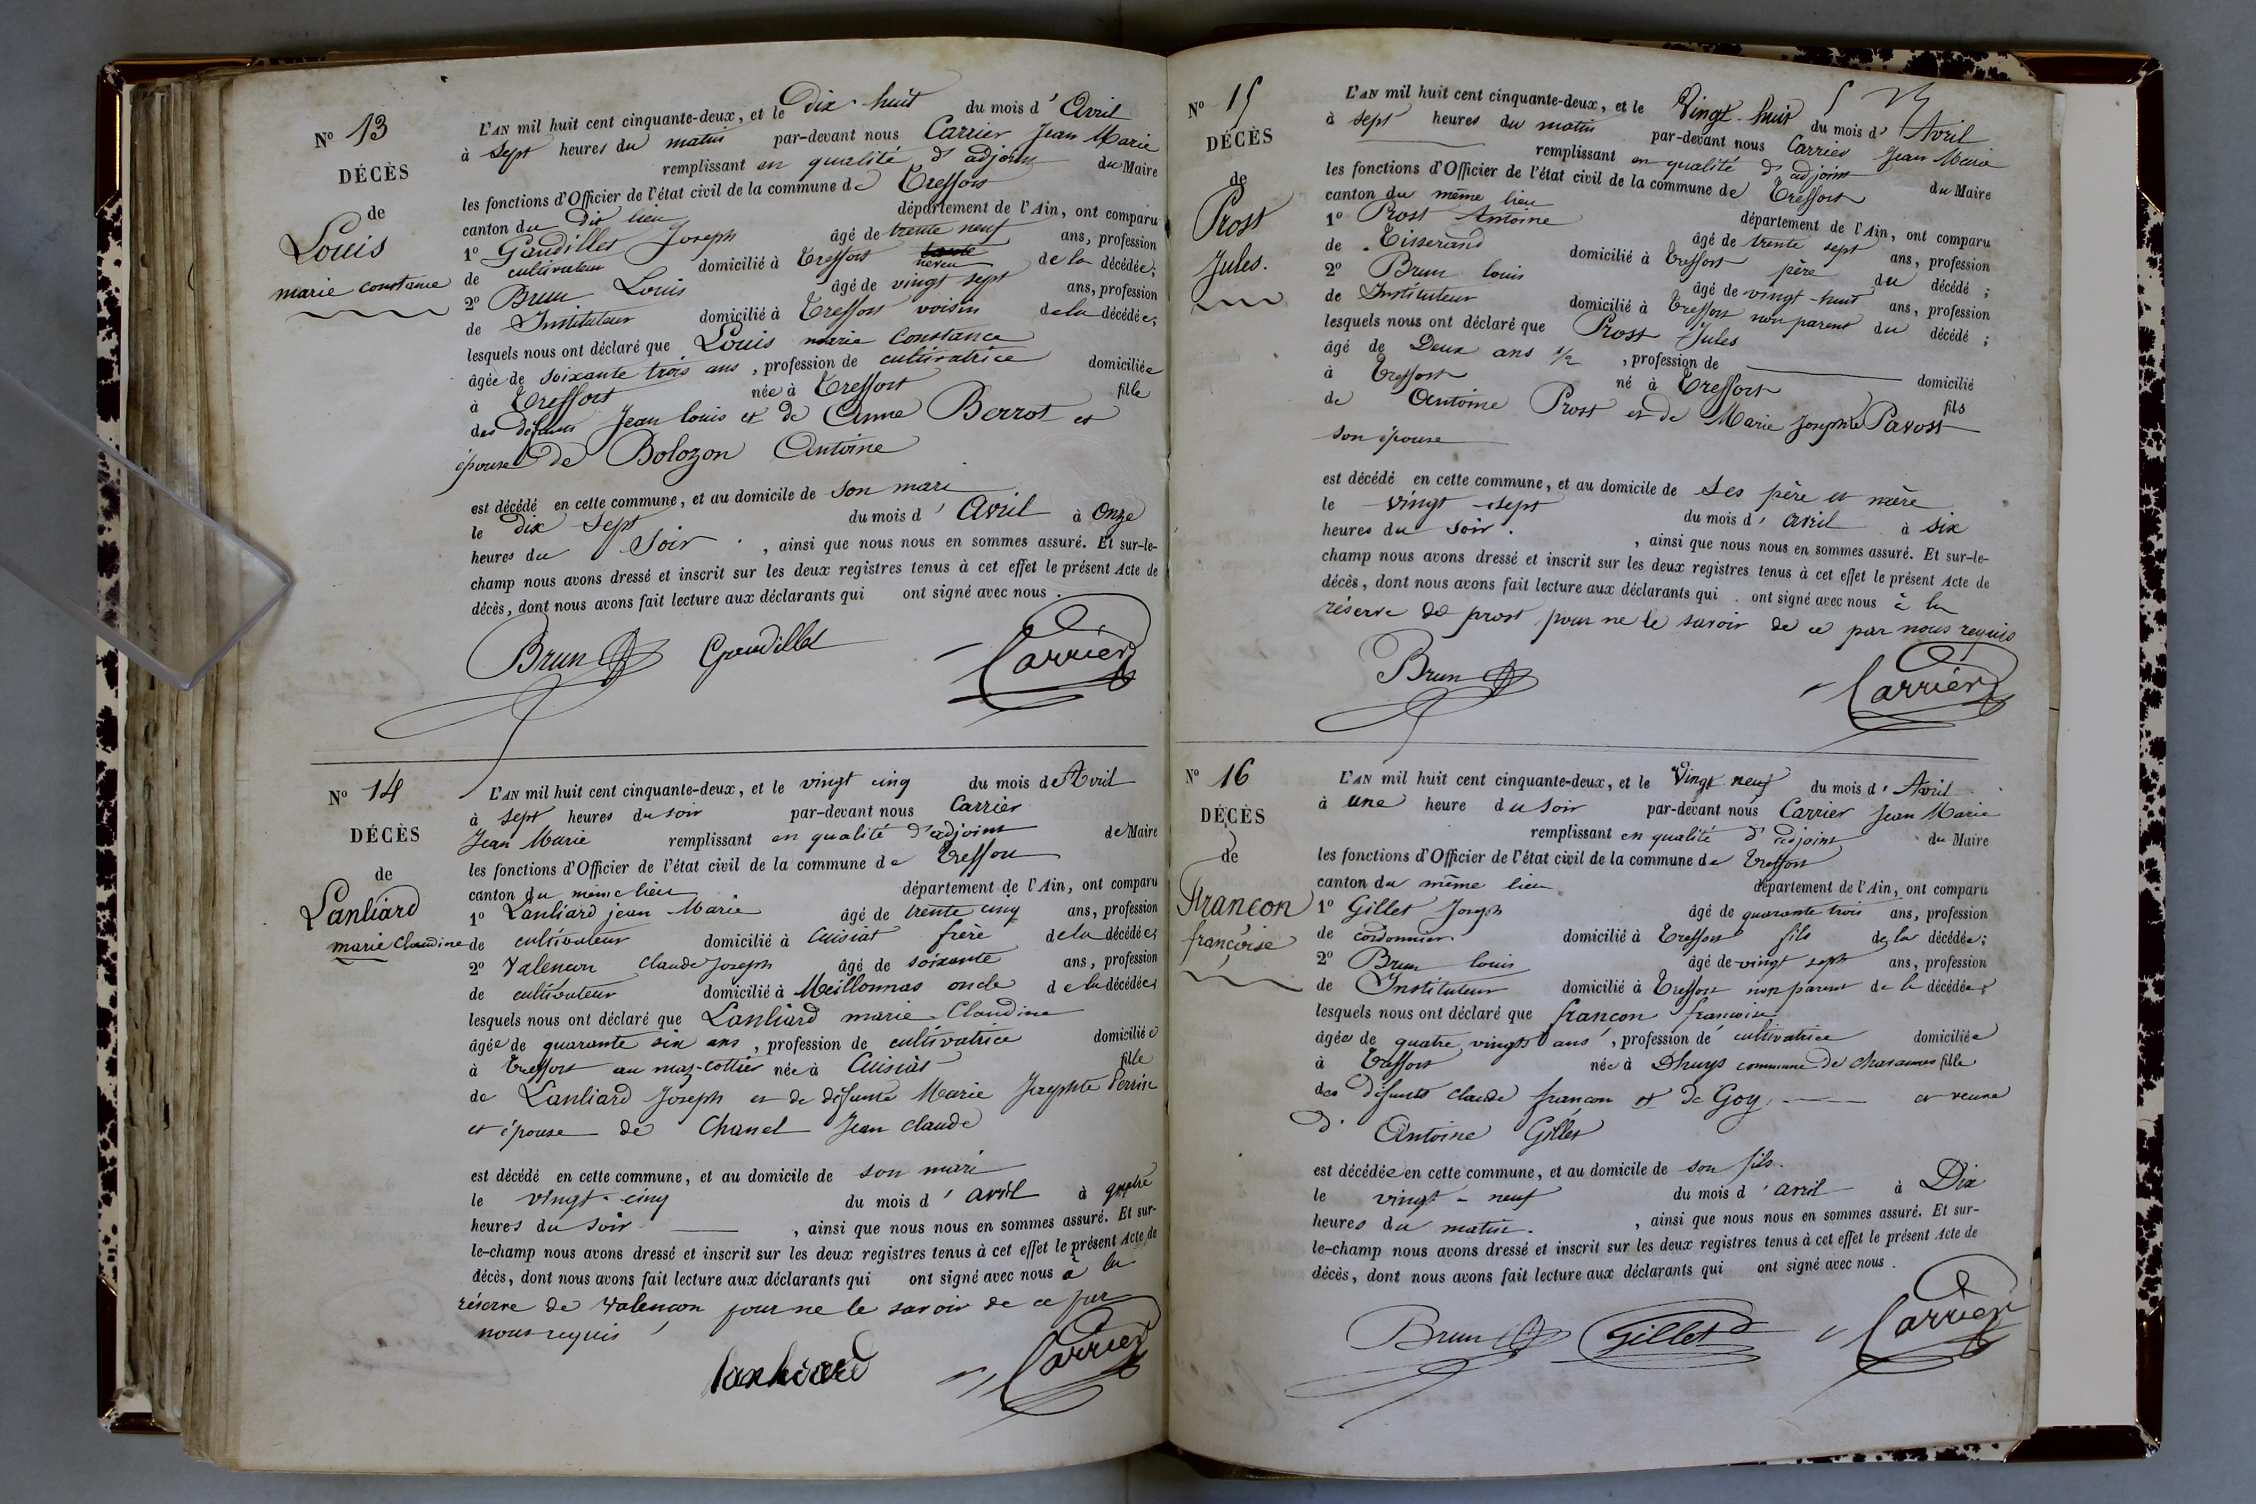 N° 13
DÉCÈS
de
Louis
marie constance
L'AN mil huit cent cinquante-deux, et le Dix-huit du mois d'Avril
à Sept heures du matin par-devant nous Carrier Jean Marie
remplissant en qualité d'adjoint du Maire
les fonctions d'Officier de l'état civil de la commune de Treffort
canton du dit lieu département de l'Ain, ont comparu
1° Gaudillet Joseph âgé de trente neuf ans, profession
de cultivateur domicilié à Treffort neveu de la décédée;
2° Brun Louis âgé de vingt sept ans, profession
de Instituteur domicilié à Treffort voisin de la décédée;
lesquels nous ont déclaré que Louis marie Constance
âgée de soixante trois ans, profession de cultivatrice domiciliée
à Treffort née à Treffort fille
des défunts Jean louis et de Anne Berrot et
épouse de Bolozon Antoine
est décédé en cette commune, et au domicile de son mari
le Dix Sept du mois d'Avril à Onze
heures du Soir, ainsi que nous nous en sommes assuré. Et sur-le-
champ nous avons dressé et inscrit sur les deux registres tenus à cet effet le présent Acte de
décès, dont nous avons fait lecture aux déclarants qui ont signé avec nous.
Brun Gaudillet Carrier
N° 14
DÉCÈS
de
Lanliard
marie Claudine
L'AN mil huit cent cinquante-deux, et le vingt cinq du mois de Avril
à sept heures du soir par-devant nous Carrier
Jean Marie remplissant en qualité d'adjoint de Maire
les fonctions d'Officier de l'état civil de la commune de Treffort
canton du même lieu département de l'Ain, ont comparu
1° Lanliard jean Marie âgé de trente cinq ans, profession
de cultivateur domicilié à Cuisiat frère de la décédée;
2° Valencon Claude Joseph âgé de soixante ans, profession
de cultivateur domicilié à Meillonnas oncle de la décédée;
lesquels nous ont déclaré que Lanliard marie Claudine
âgée de quarante six ans, profession de cultivatrice domiciliée
à Treffort au maz-Cottier née à Cuisiat fille
de Lanliard Joseph et de défunte Marie Josephte Perrin
et épouse de Chanel Jean claude
est décédé en cette commune, et au domicile de son mari
le vingt-cinq du mois d'avril à quatre
heures du soir, ainsi que nous nous en sommes assuré. Et sur-
le-champ nous avons dressé et inscrit sur les deux registres tenus à cet effet le présent Acte de
décès, dont nous avons fait lecture aux déclarants qui ont signé avec nous à la
réserve de Valencon pour ne le savoir de ce par
nous requis
Lanliard Carrier
N° 15
DÉCÈS
de
Prost
Jules.
L'AN mil huit cent cinquante-deux, et le Vingt-huit du mois d'Avril
à sept heures du matin par-devant nous Carrier Jean Marie
remplissant en qualité d'adjoint du Maire
les fonctions d'Officier de l'état civil de la commune de Treffort
canton du même lieu département de l'Ain, ont comparu
1° Prost Antoine âgé de trente sept ans, profession
de Tisserand domicilié à Treffort père du décédé;
2° Brun louis âgé de vingt-huit ans, profession
de Instituteur domicilié à Treffort non parent du décédé;
lesquels nous ont déclaré que Prost Jules
âgé de Deux ans 1/2, profession de domicilié
à Treffort né à Treffort fils
de Antoine Prost et de Marie Josephte Pavost
son épouse
est décédé en cette commune, et au domicile de ses père et mère
le vingt-sept du mois d'avril à six
heures du soir., ainsi que nous nous en sommes assuré. Et sur-le-
champ nous avons dressé et inscrit sur les deux registres tenus à cet effet le présent Acte de
décès, dont nous avons fait lecture aux déclarants qui ont signé avec nous à la
réserve de prost pour ne le savoir de ce par nous requis
Brun Carrier
N° 16
DÉCÈS
de
Francon
françoise
L'AN mil huit cent cinquante-deux, et le Vingt neuf du mois d'Avril
à une heure du soir par-devant nous Carrier Jean Marie
remplissant en qualité d'adjoint du Maire
les fonctions d'Officier de l'état civil de la commune de Treffort
canton du même lieu département de l'Ain, ont comparu
1° Gillet Joseph âgé de quarante trois ans, profession
de cordonnier domicilié à Treffort fils de la décédée;
2° Brun louis âgé de vingt sept ans, profession
de Instituteur domicilié à Treffort non parent de la décédée;
lesquels nous ont déclaré que francon francoise
âgée de quatre vingts ans, profession de cultivatrice domiciliée
à Treffort née à Dhuys commune de fille
des défunts claude francon et de Goy et veuve
d' Antoine Gillet
est décédée en cette commune, et au domicile de son fils.
le vingt-neuf du mois d'avril à Dix
heures du matin., ainsi que nous nous en sommes assuré. Et sur-
le-champ nous avons dressé et inscrit sur les deux registres tenus à cet effet le présent Acte de
décès, dont nous avons fait lecture aux déclarants qui ont signé avec nous.
Brun Gillet Carrier